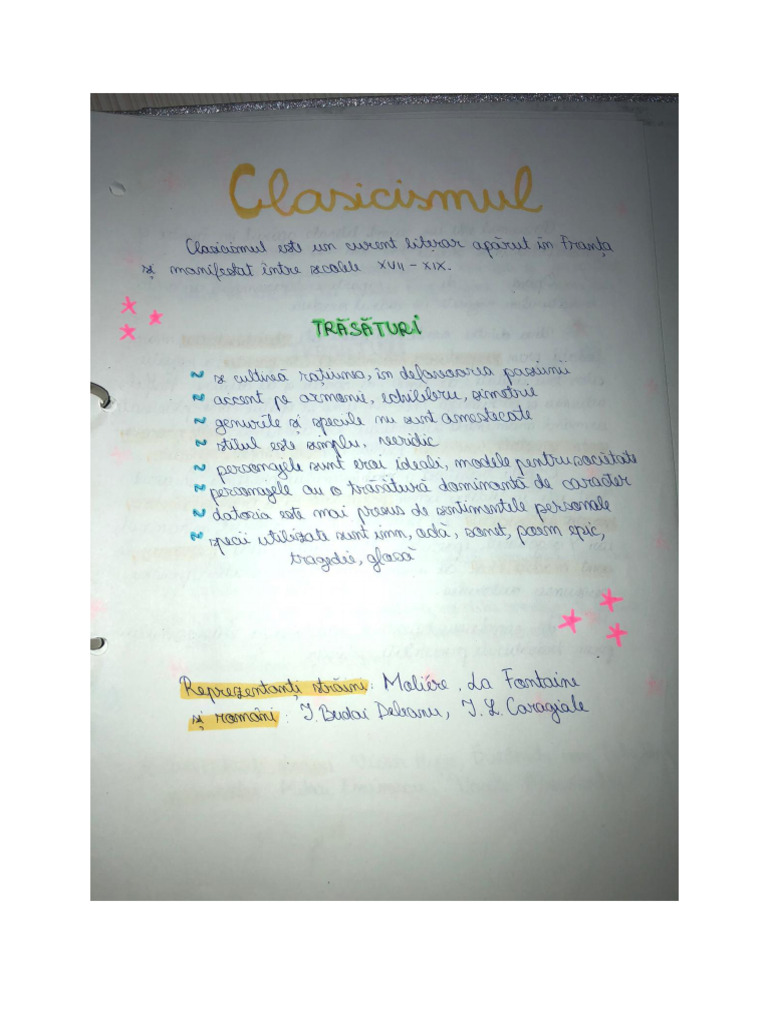 Clasicismul
Clasicismul este un curent literar apărut în Franța
și manifestat între secolele XVII - XIX.
TRĂSĂTURI
~ se cultivă rațiunea, în defavoarea pasiunii
~ accent pe armonii, echilibru, simetrie
~ genurile și speciile nu sunt amestecate
~ stilul este simplu, neeridic
~ personajele sunt eroi ideali, modele pentru societate
~ personajele au o trăsătură dominantă de caracter
~ datoria este mai presus de sentimentele personale
~ specii utilizate sunt imn, odă, sonet, poem epic,
tragedie, glosă
Reprezentanți străini: Moliére, La Fontaine
și români: I. Budai Deleanu, I. L. Caragiale